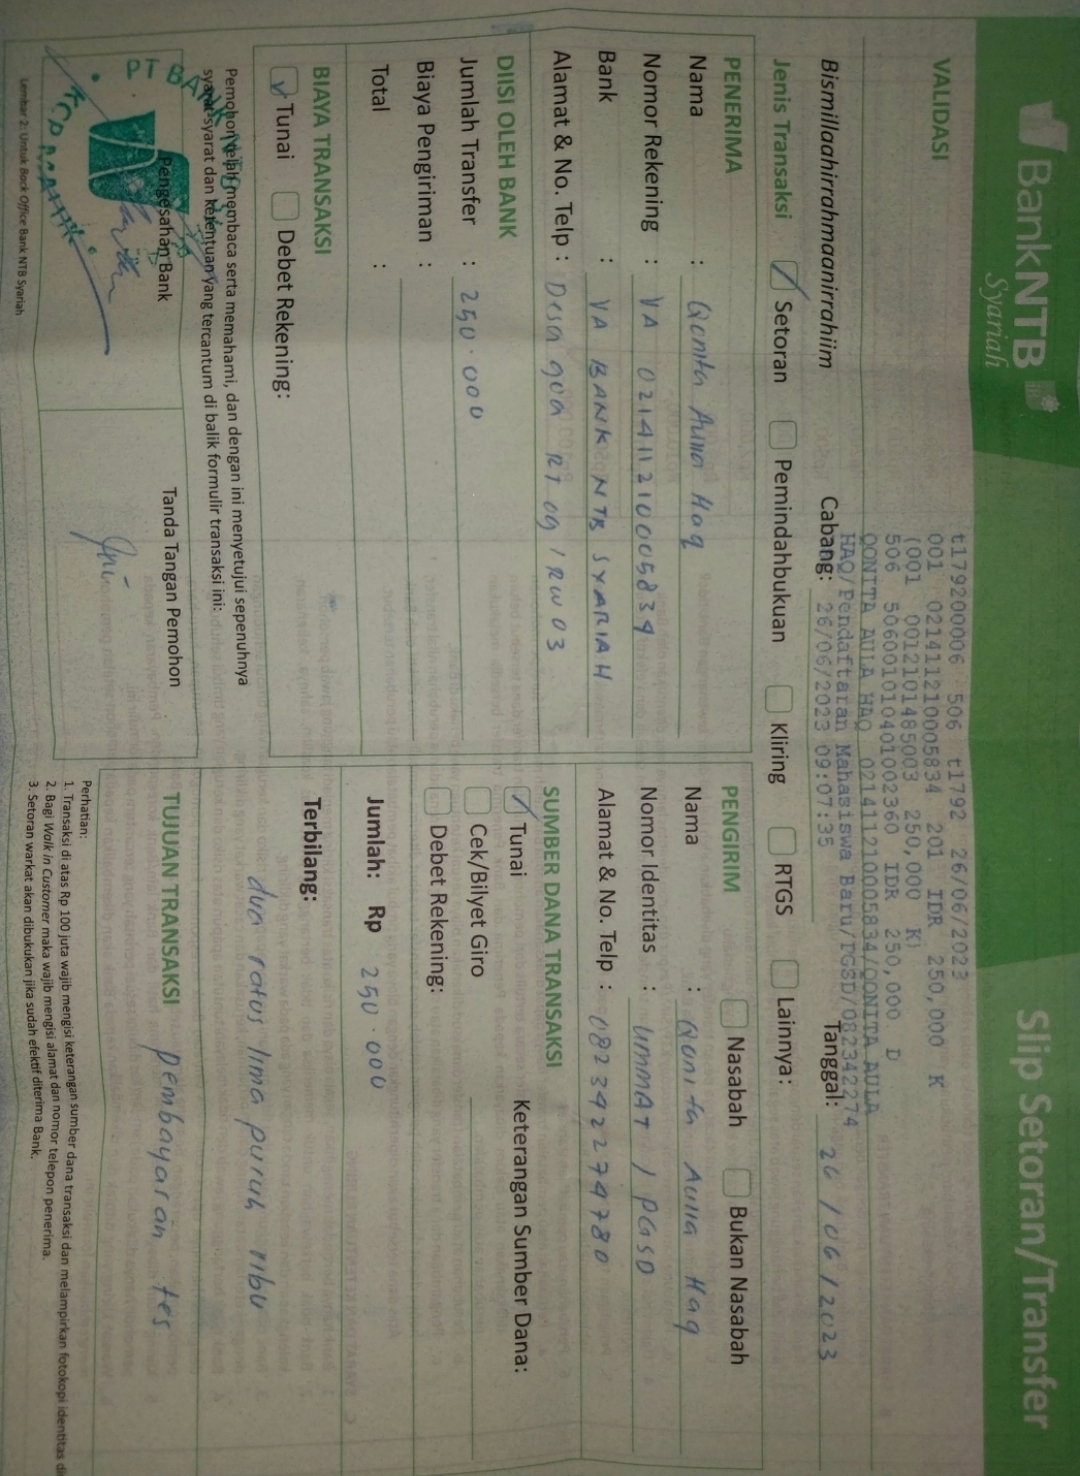 BankNTB
Syariah
Slip Setoran/Transfer
VALIDASI
t1792000006 506 t1792 26/06/2023
001 0214112100005834 201 IDR 250,000 K
(001 0012101485003 250,000 K)
506 506001010401002360 IDR 250,000 D
QONITA AULA HAQ 0214112100005834/QONITA AULA
HAQ/Pendaftaran Mahasiswa Baru/PGSD/082342274
26/06/2023 09:07:35
Bismillaahirrahmaanirrahiim
Cabang:
Tanggal: 26/06/2023
Jenis Transaksi
Setoran
Pemindahbukuan
Kliring
RTGS
Lainnya:
PENERIMA
Nama : Qonita Aulia Haq
Nomor Rekening : VA 0214112100005834
Bank : VA BANK NTB SYARIAH
Alamat & No. Telp : Desa goa RT 09 / RW 03
PENGIRIM
Nasabah
Bukan Nasabah
Nama : Qonita Aulia Haq
Nomor Identitas : UMMAT / PGSD
Alamat & No. Telp : 082 3422 74780
DIISI OLEH BANK
Jumlah Transfer : 250.000
Biaya Pengiriman :
Total :
SUMBER DANA TRANSAKSI
Tunai
Keterangan Sumber Dana:
Cek/Bilyet Giro
Debet Rekening:
BIAYA TRANSAKSI
Tunai
Debet Rekening:
Jumlah: Rp 250.000
Terbilang:
dua ratus lima puluh ribu
Pemohon telah membaca serta memahami, dan dengan ini menyetujui sepenuhnya
syarat-syarat dan ketentuan yang tercantum di balik formulir transaksi ini:
Pengesahan Bank
PT BANK
Tanda Tangan Pemohon
TUJUAN TRANSAKSI
Pembayaran tes
Perhatian:
1. Transaksi di atas Rp 100 juta wajib mengisi keterangan sumber dana transaksi dan melampirkan fotokopi identitas
2. Bagi Walk in Customer maka wajib mengisi alamat dan nomor telepon penerima.
3. Setoran warkat akan dibukukan jika sudah efektif diterima Bank.
Lembar 2: Untuk Back Office Bank NTB Syariah